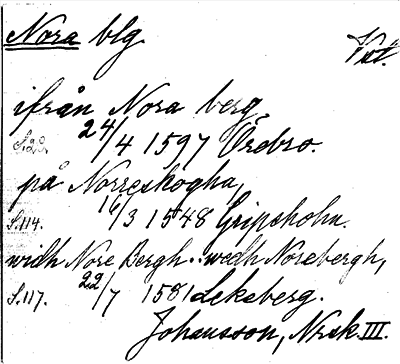 Nora blg. Vstl.
ifrån Nora berg,
S. 20. 24/4 1597 Örebro.
på Norreskogha,
S. 114. 16/3 1548 Gripsholm.
widh Nore Bergh.. wedh Norebergh,
S. 117. 22/7 1581 Lekeberg.
Johansson, Norask. III.